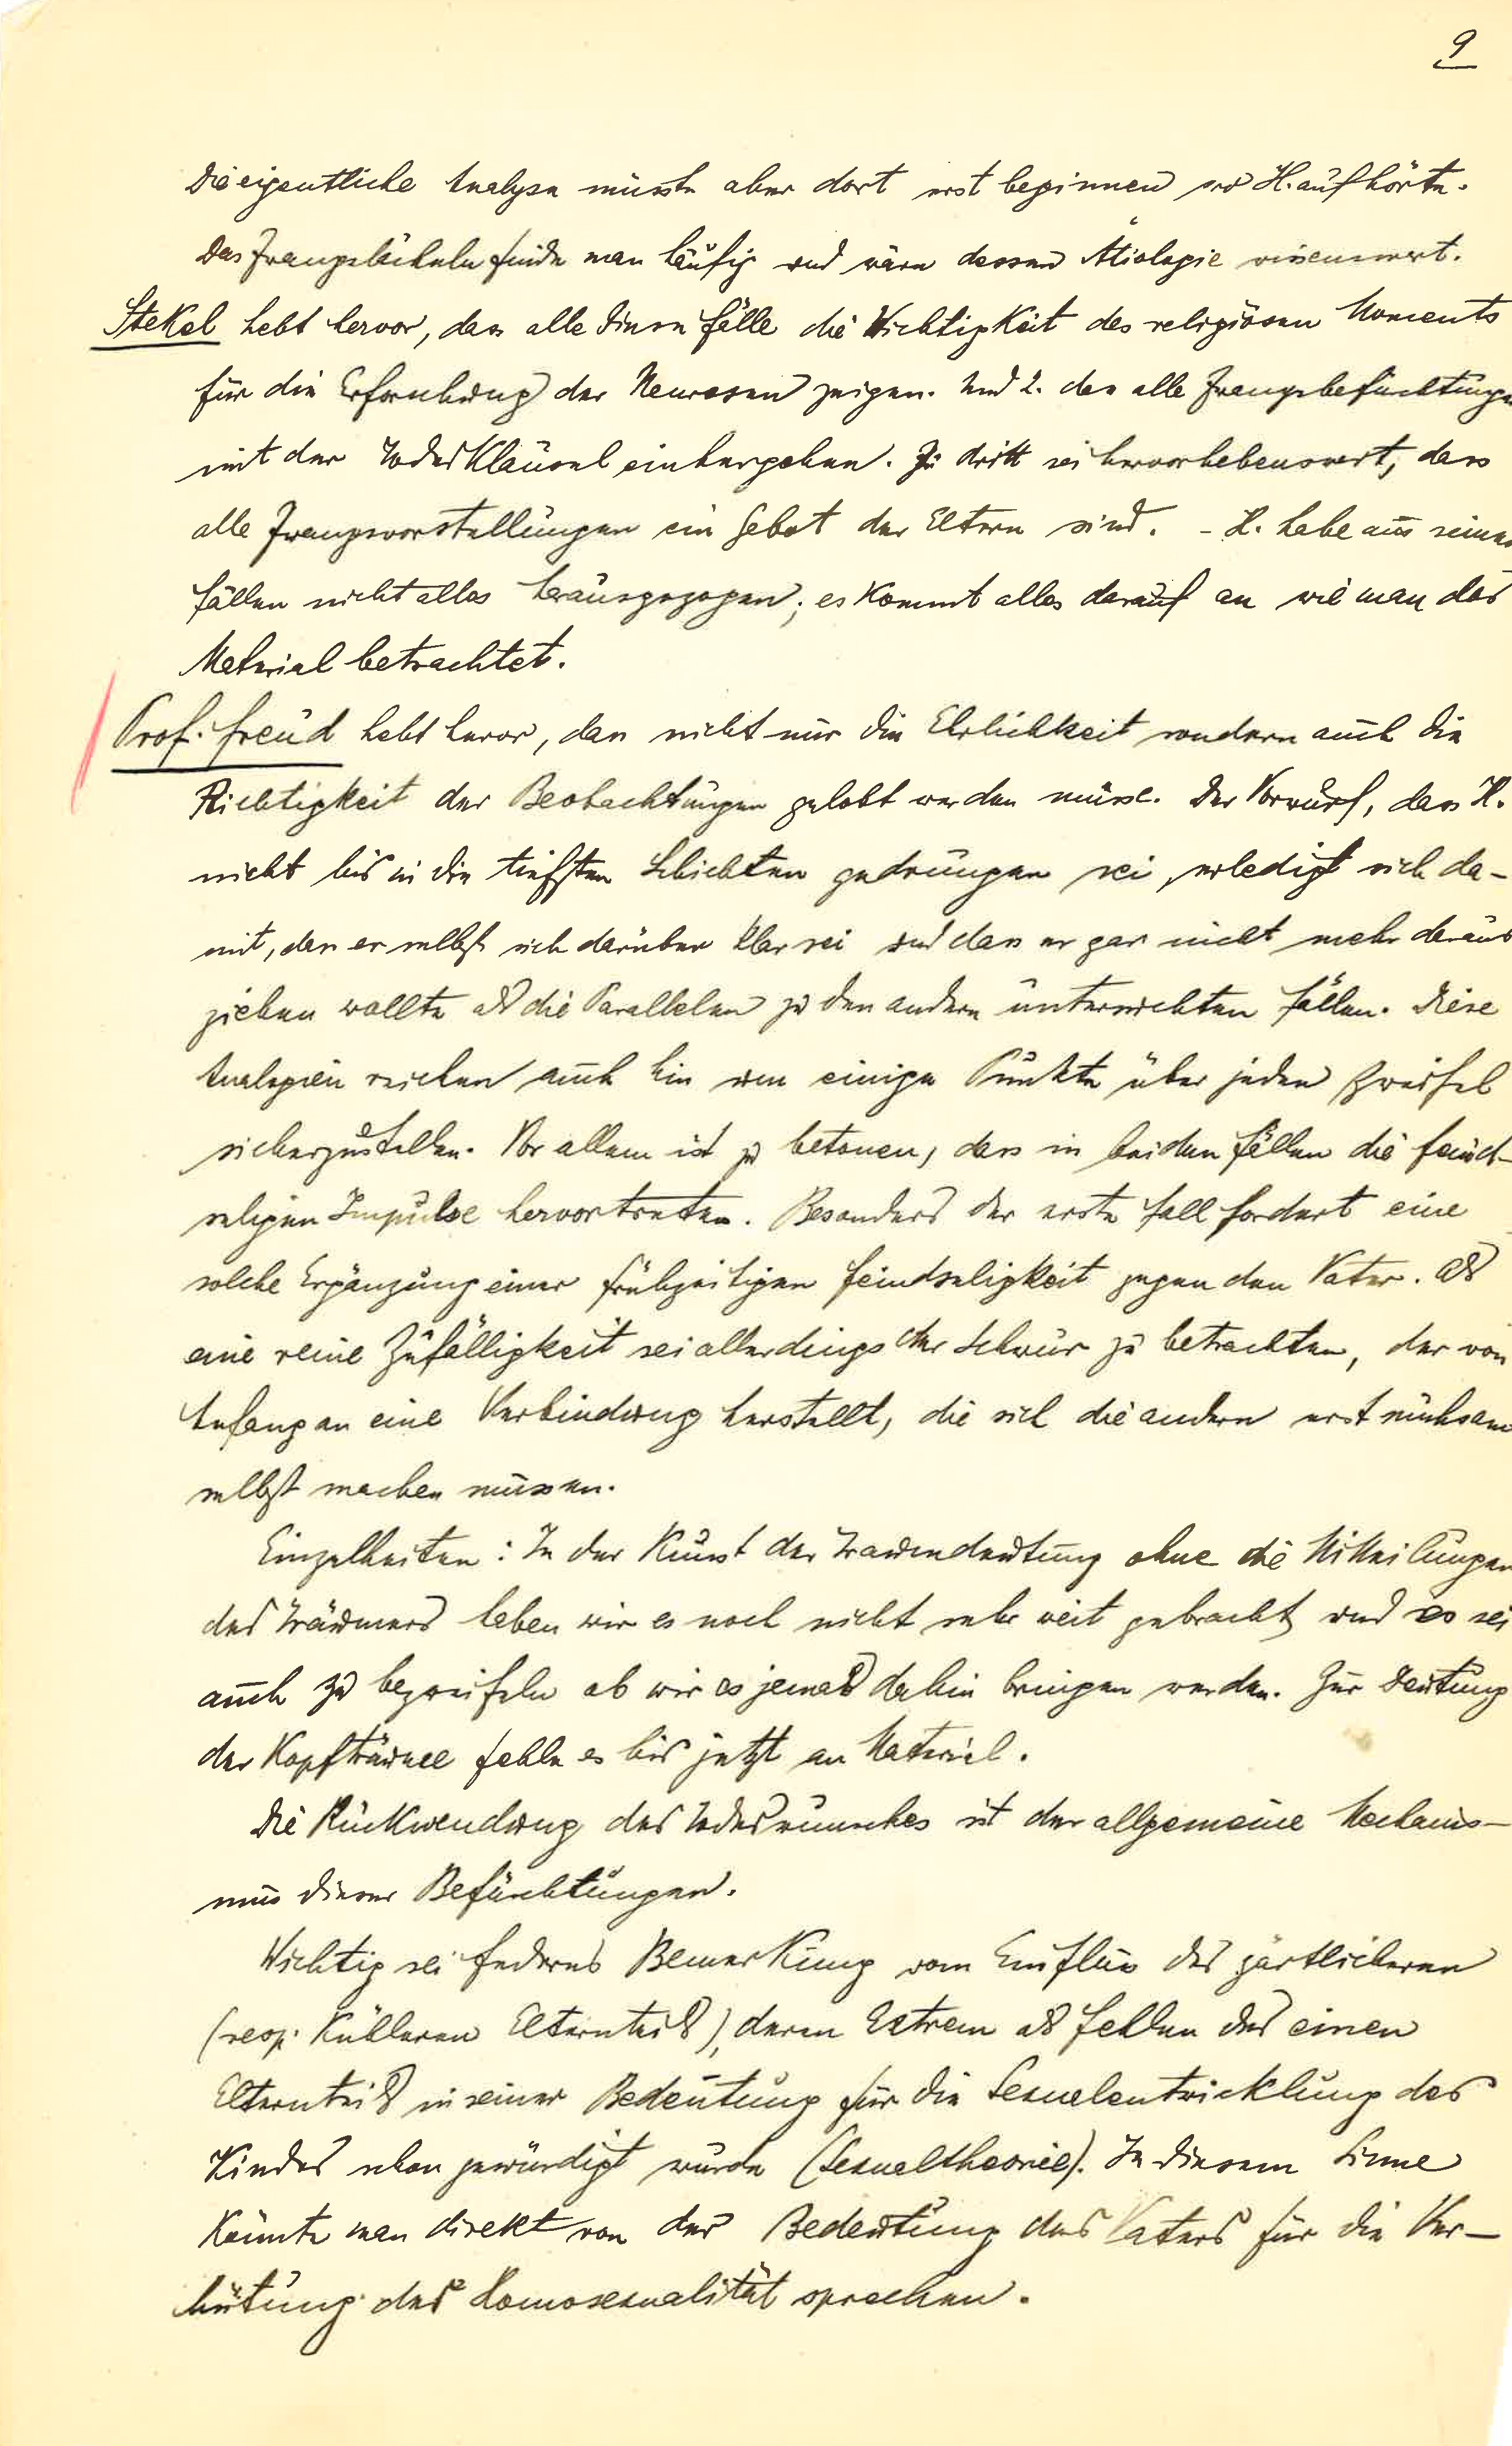 9
Die eigentliche Analyse müsste aber dort erst beginnen wo H. aufhörte.
Das Zwangslächeln finde man häufig und wäre dessen Ätiologie wissenswert.
Stekel hebt hervor, dass alle diese Fälle die Wichtigkeit des religiösen Moments
für die Erforschung der Neurosen zeigen. Und 2. dass alle Zwangsbefürchtungen
mit der Todesklausel einhergehen. Zu dritt sei hervorhebenswert, dass
alle Zwangsvorstellungen ein Gebot der Eltern sind. – H. habe aus seinen
Fällen nicht alles herausgezogen; es kommt alles darauf an wie man das
Material betrachtet.
Prof. Freud hebt hervor, dass nicht nur die Ehrlichkeit sondern auch die
Richtigkeit der Beobachtungen gelobt werden müsse. Der Vorwurf, dass H.
nicht bis in die tiefsten Schichten gedrungen sei, erledigt sich da-
mit, dass er selbst sich darüber klar sei und dass er gar nicht mehr daraus
ziehen wollte als die Parallelen zu den andern untersuchten Fällen. Diese
Analogien reichen auch hin um einige Punkte über jeden Zweifel
sicherzustellen. Vor allem ist zu betonen, dass in beiden Fällen die feind-
seligen Impulse hervortreten. Besonders der erste Fall fordert eine
solche Ergänzung einer frühzeitigen Feindseligkeit gegen den Vater. Als
eine reine Zufälligkeit sei allerdings der Schwur zu betrachten, der von
Anfang an eine Verbindung herstellt, die sich die andern erst mühsam
selbst machen müssen.
Einzelheiten: In der Kunst der Traumdeutung ohne die Mitteilungen
des Träumers haben wir es noch nicht sehr weit gebracht und es sei
auch zu bezweifeln ob wir es jemals dahin bringen werden. Zur Deutung
der Kopfträume fehle es bis jetzt an Material.
Die Rückwendung des Todeswunsches ist der allgemeine Mechanis-
mus dieser Befürchtungen.
Wichtig sei Federns Bemerkung vom Einfluss des zärtlicheren
(resp. kühleren Elternteils), deren Extrem als Fehlen des einen
Elternteils in seiner Bedeutung für die Sexualentwicklung des
Kindes schon gewürdigt wurde (Sexualtheorie). In diesem Sinne
könnte man direkt von der Bedeutung des Vaters für die Ver-
hütung der Homosexualität sprechen.